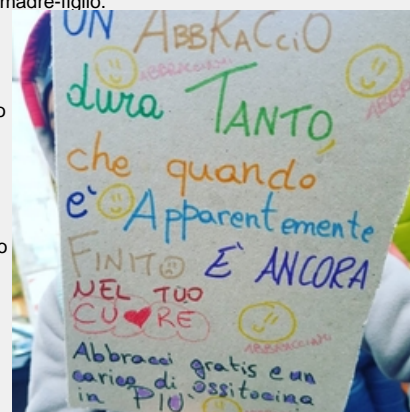 madre-figlio.
UN ABBRACCIO
ABBRACCIAMI
dura TANTO,
che quando
e' Apparentemente
FINITO E' ANCORA
NEL TUO
CU❤RE
ABBRACCIAMI
Abbracci gratis e un
carico di ossitocina
in PIÙ